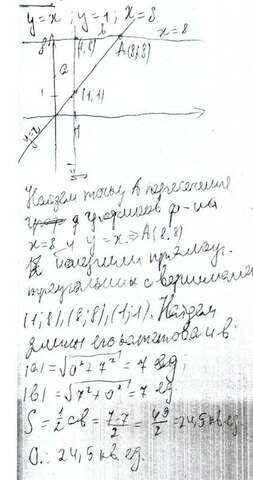 y=x ; y=1 ; x=8
8
(1,8)
b
x=8
A(8;8)
a
1
(1;1)
1
y=x
Найдем точку в пересечения
графиков ф-ий
x=8 и y=x ⇒ A(8,8)
получили прямоуг.
треугольник с вершинами
(1;8),(8;8),(1;1). Найдем
длины его катетов a и b:
|a|=√0²+7²=7 ед
|b|=√7²+0²=7 ед
S=1/2 ab=7·7/2=49/2=24,5 кв.ед.
О.: 24,5 кв.ед.